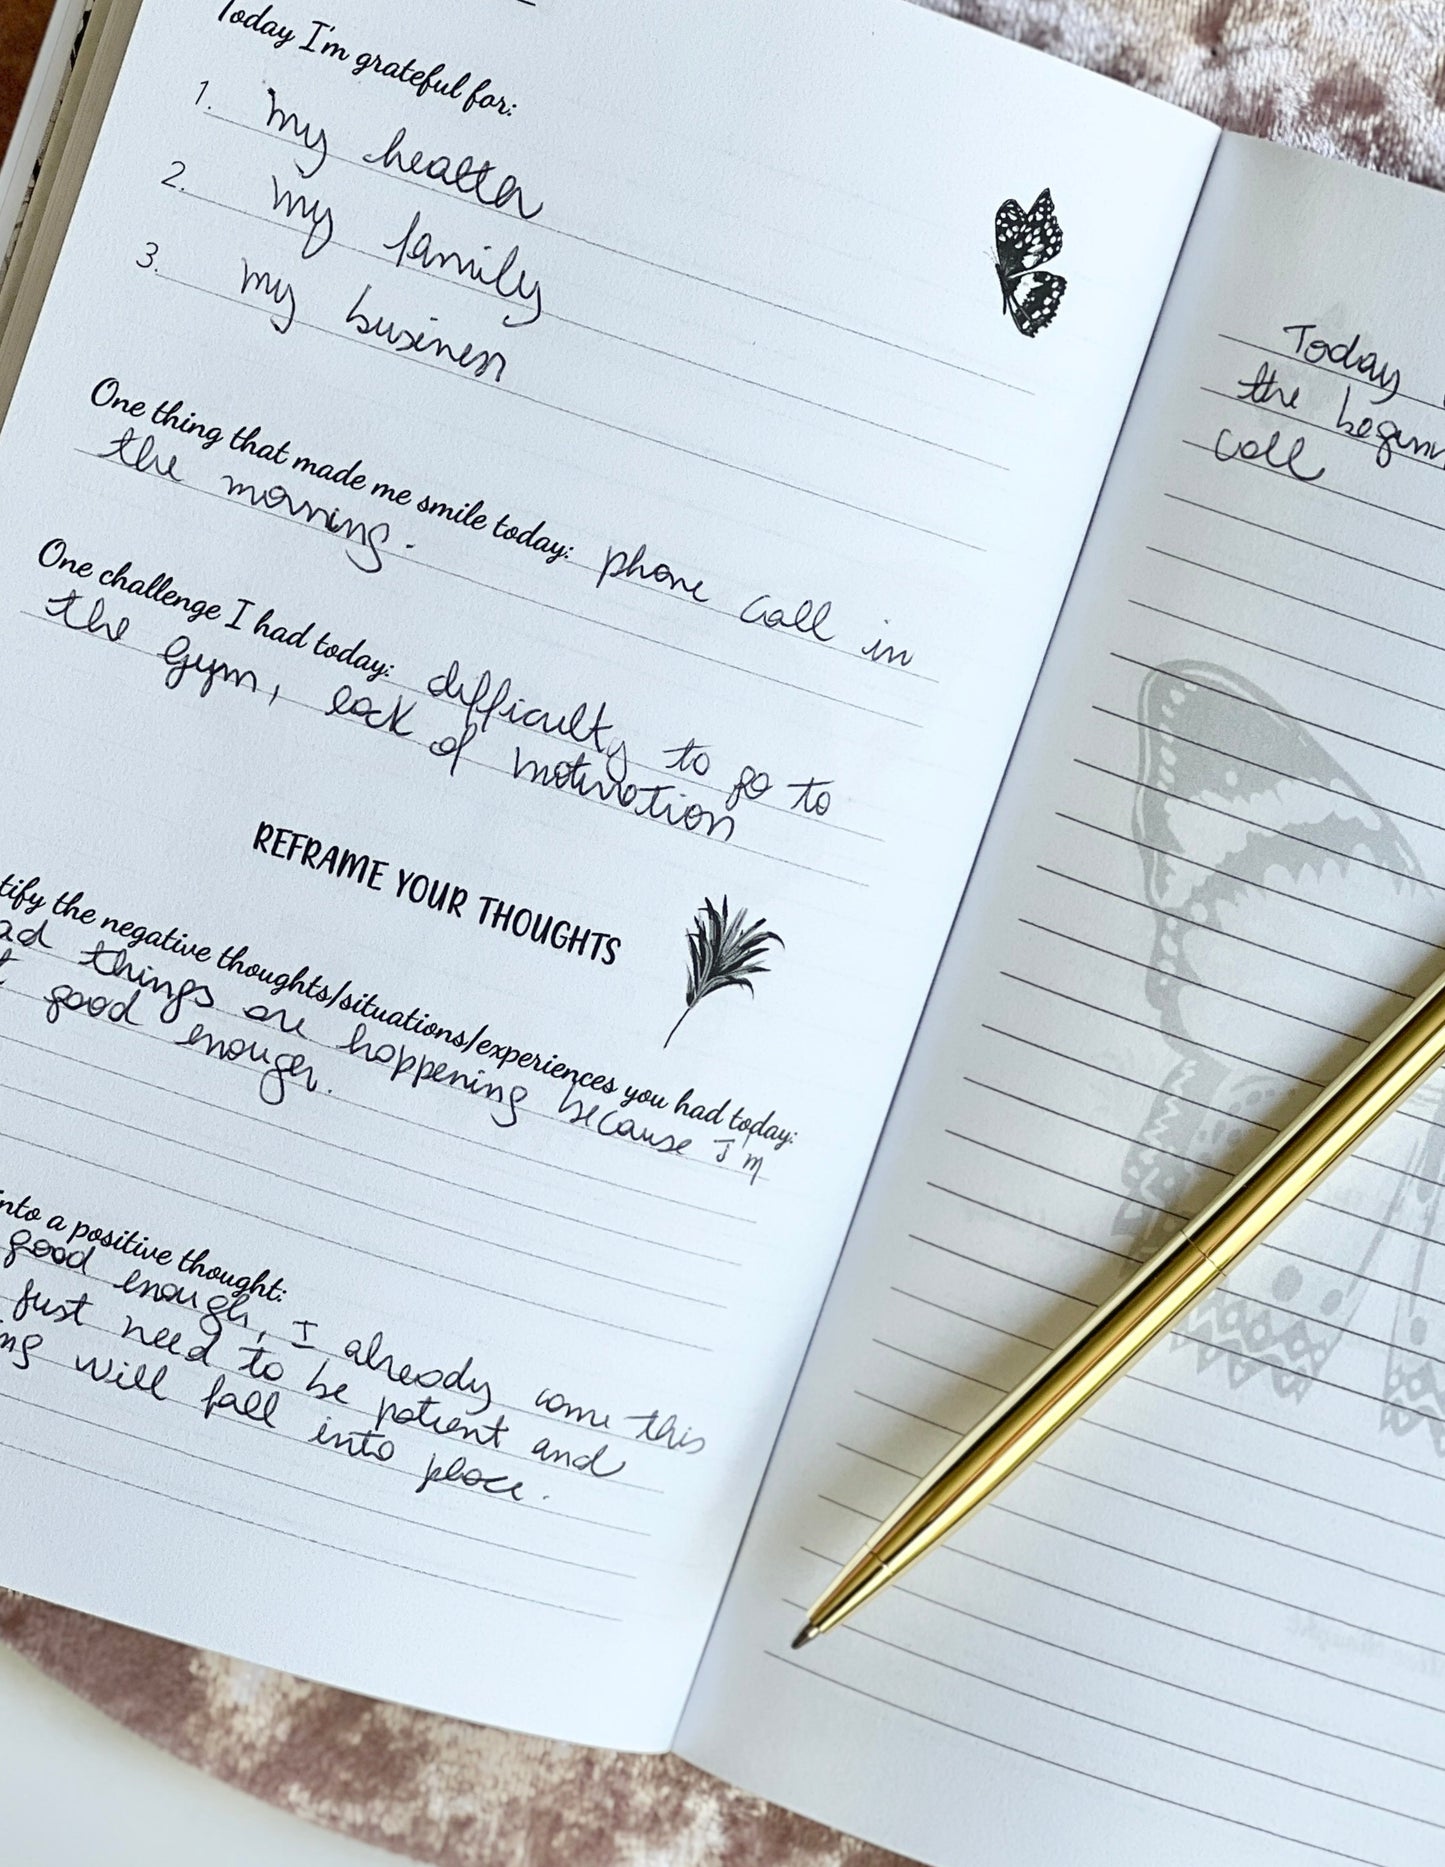 Today I'm grateful for:
1. my health
2. my family
3. my business
One thing that made me smile today: phone call in
the morning.
One challenge I had today: difficulty to go to
the gym, lack of motivation
REFRAME YOUR THOUGHTS
tify the negative thoughts/situations/experiences you had today:
ad things are happening because I'm
t good enouger.
into a positive thought:
good enough, I already come this
just need to be patient and
ing will fall into place.
Today
the beginn
call